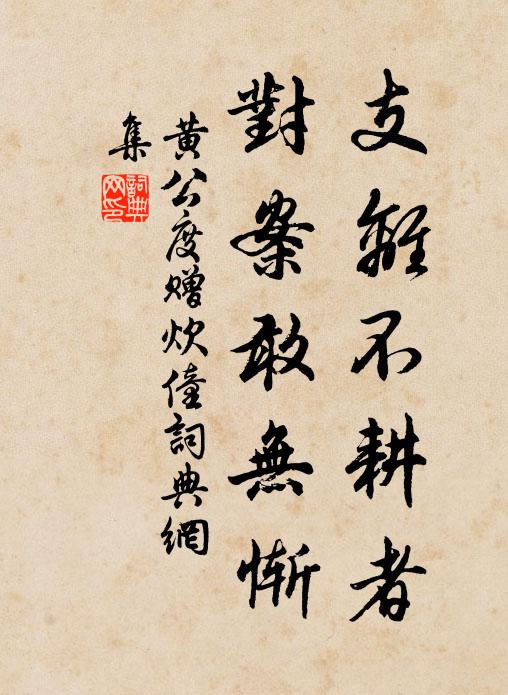 支離不耕者
對案敢無慚
黃公度贈炊僮詞典網
集
詞典
网印